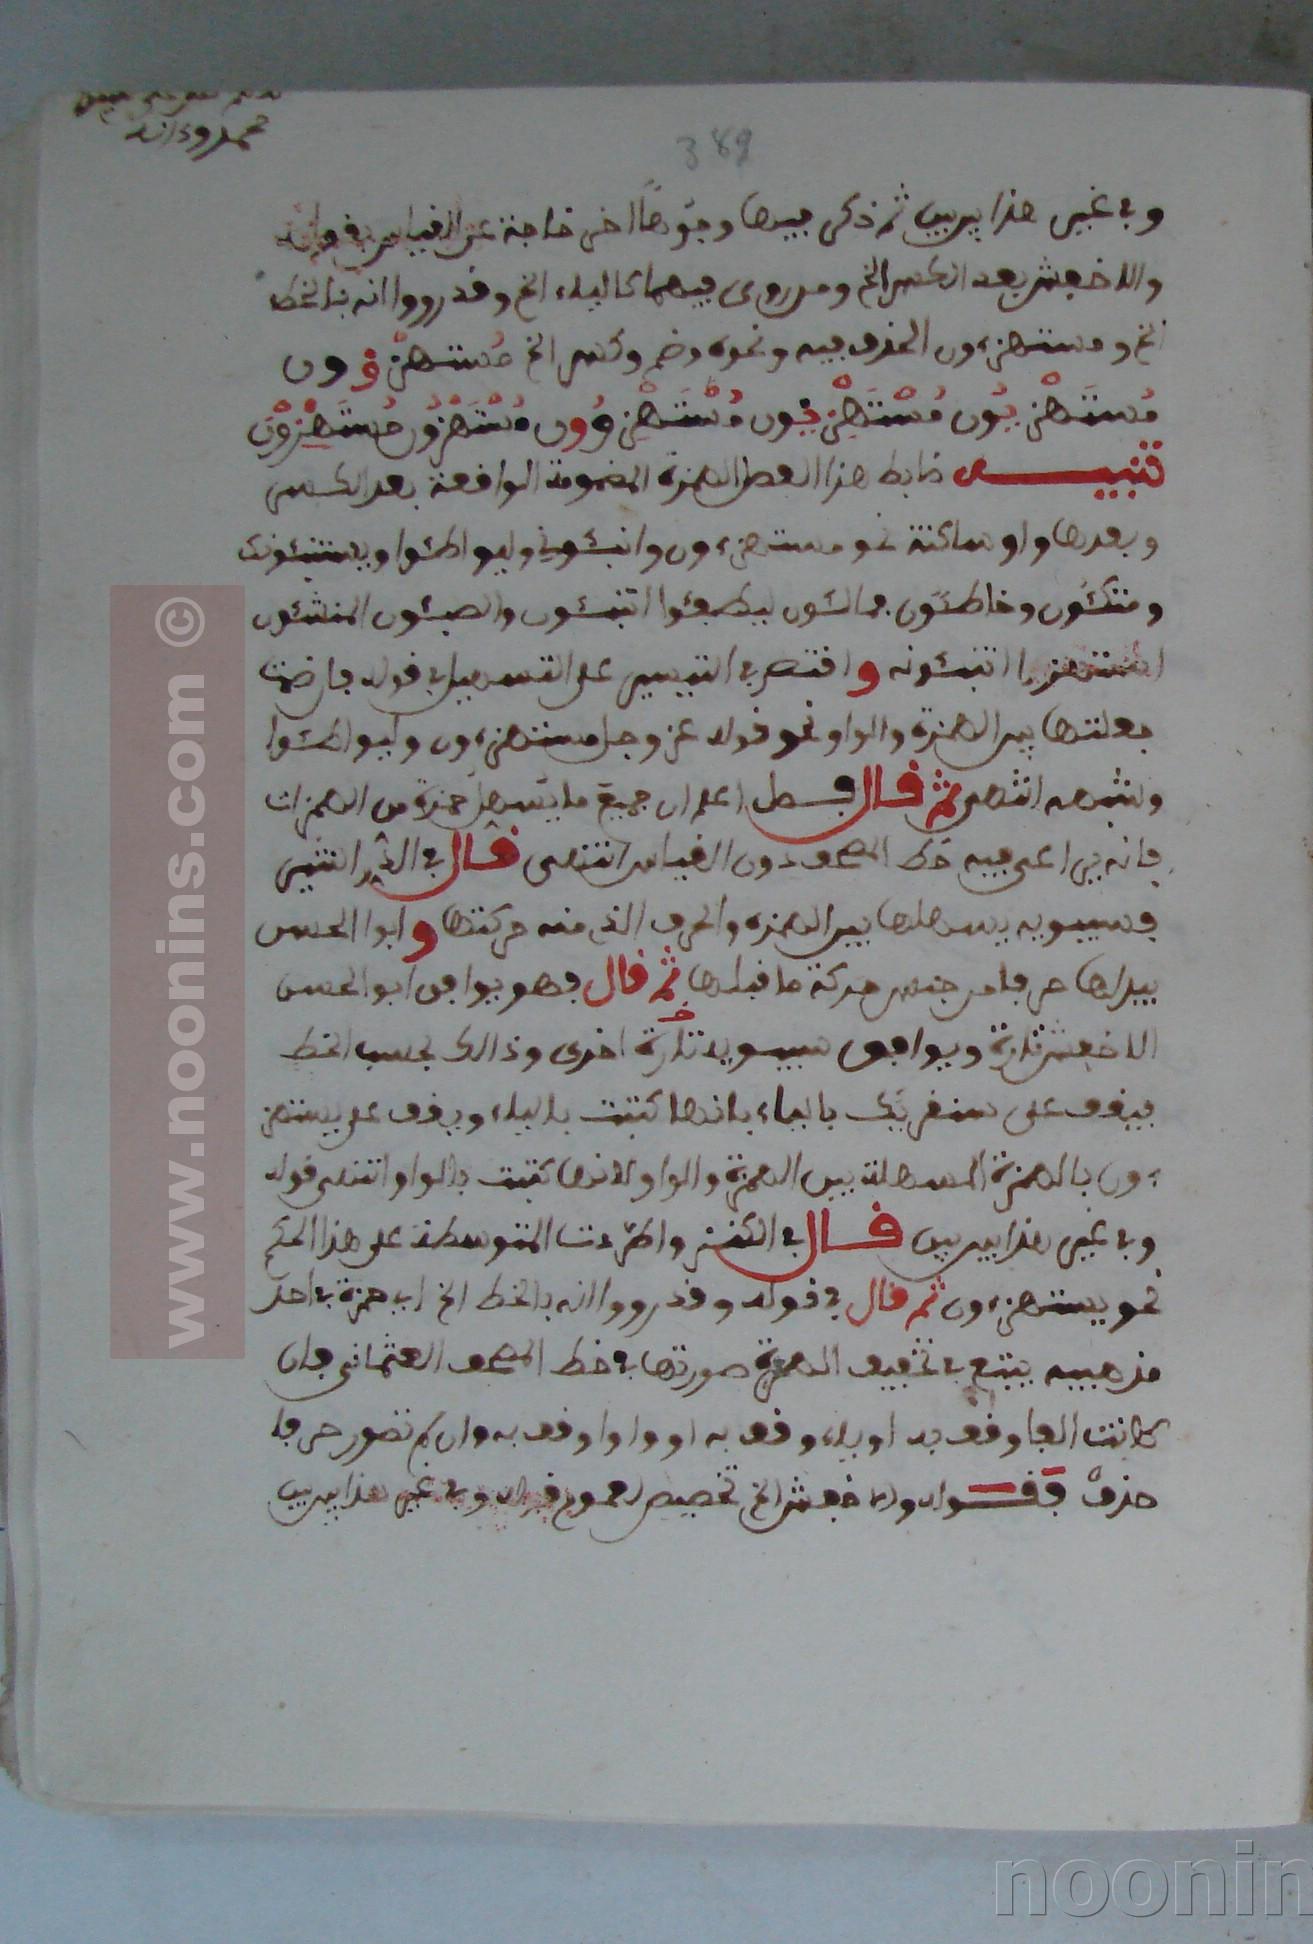 389
وفي غير هذا بين بين ثم ذكر فيها وجوها اخر خارجة عن القياس بقوله
والاخفش بعد الكسر الخ ومن روى فيهما كالياء الخ وقد رووا انه بالخط
الخ ومستهزءون الحذف فيه ونحوه وضم وكسر الخ مُستهزِءون
مُستَهزِيُون مُسْتَهزِيُون مُسْتَهزِءُون مُسْتَهْزُون مُسْتَهْزِوْن
تنبيه ضابط هذا الفصل الهمزة المضمومة الواقعة بعد الكسر
وبعدها واو ساكنة نحو مستهزءون وانبئوني وليواطئوا ويستنبئونك
ومتكئون وخاطئون فمالئون ليطفئوا اتنبئون والصبئون المنشئون
استهزءوا اتنبئونه واقتصر في التيسير على التسهيل في قوله فان ضمت
جعلتها بين الهمزة والواو نحو قوله عز وجل مستهزءون وليواطئوا
وشبهه انتهى ثم قال فصل اعلم ان جميع ما يسهل حمزة من الهمزات
فانه يراعي فيه خط المصحف دون القياس انتهى قال في الدر النثير
فسيبويه يسهلها بين الهمزة والحرف الذي منه حركتها وابوا الحسن
يبدلها حرفا من جنس حركة ما قبلها ثم قال فهو يوافق ابو الحسن
الاخفش تارة ويوافق سيبويه تارة اخرى وذالك بحسب الخط
فيقف على سنقريك بالياء فانها كتبت بالياء ويقف على يستهز
ءون بالهمزة المسهلة بين الهمزة والواو لانها كتبت بالواو انتهى قوله
وفي غير هذا بين بين قال في الكنز واطردت المتوسطة على هذا الحكم
نحو يستهزءون ثم قال في قوله وقد رووا انه بالخط الخ اي حمزة في احد
مذهبيه يتبع في تخفيف الهمزة صورتها في خط المصحف العثماني فان
كانت الفا وقف به او ياء وقف به او واوا وقف به وان لم تصور حرفا
حذف فقوله والاخفش الخ تخصيص لعموم قوله وفي غير هذا بين بين
www.noonins.com ©
noonin